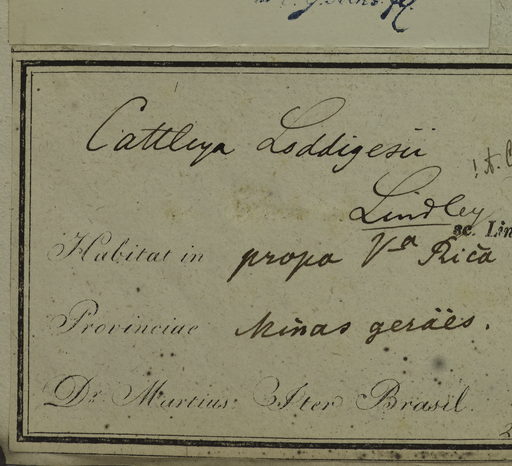 Cattleya Loddigesii
Lindley
sc. Lin
Habitat in propa Va Rica
Provinciae Minas geraës.
Dr. Martius Iter Brasil.